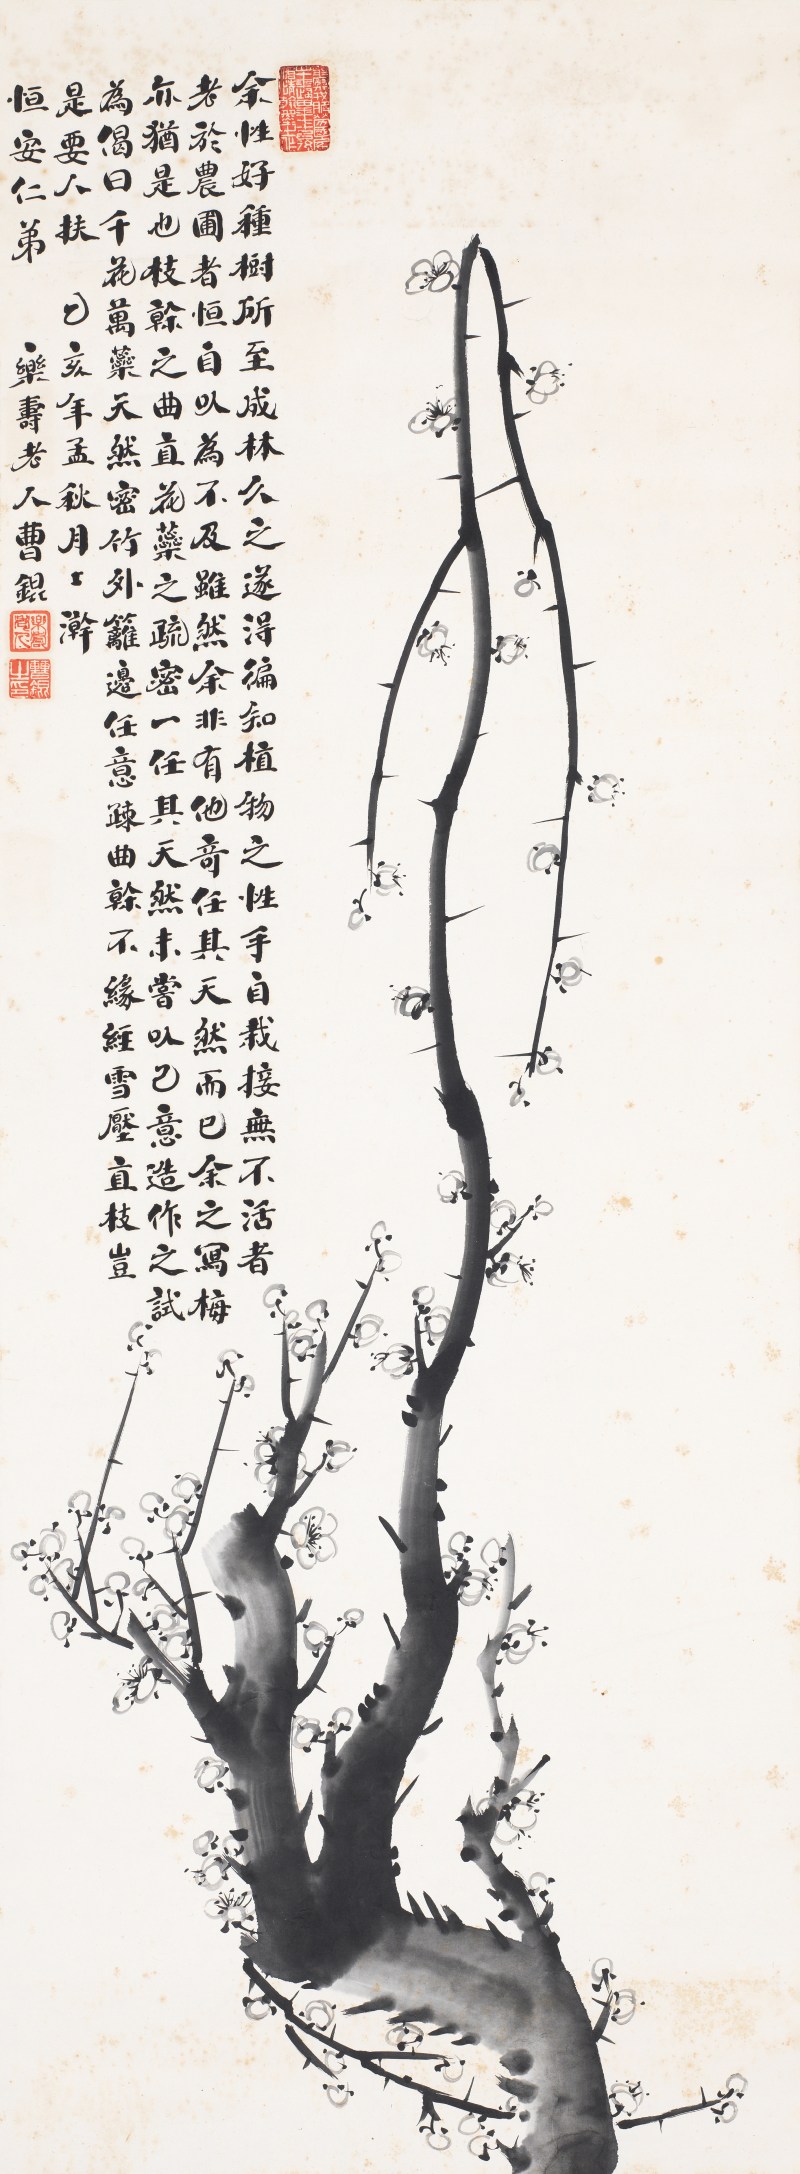 余性好種樹所至成林久之遂得徧知植物之性手自栽接無不活者
老於農圃者恒自以為不及雖然余非有他奇任其天然而已余之寫梅
亦猶是也枝榦之曲直花蘂之疏密一任其天然未嘗以己意造作之試
為偈曰千花萬蘂天然密竹外籬邊任意疎曲榦不緣經雪壓直枝豈
是要人扶 乙亥年孟秋月上澣
恒安仁弟 樂壽老人曹錕